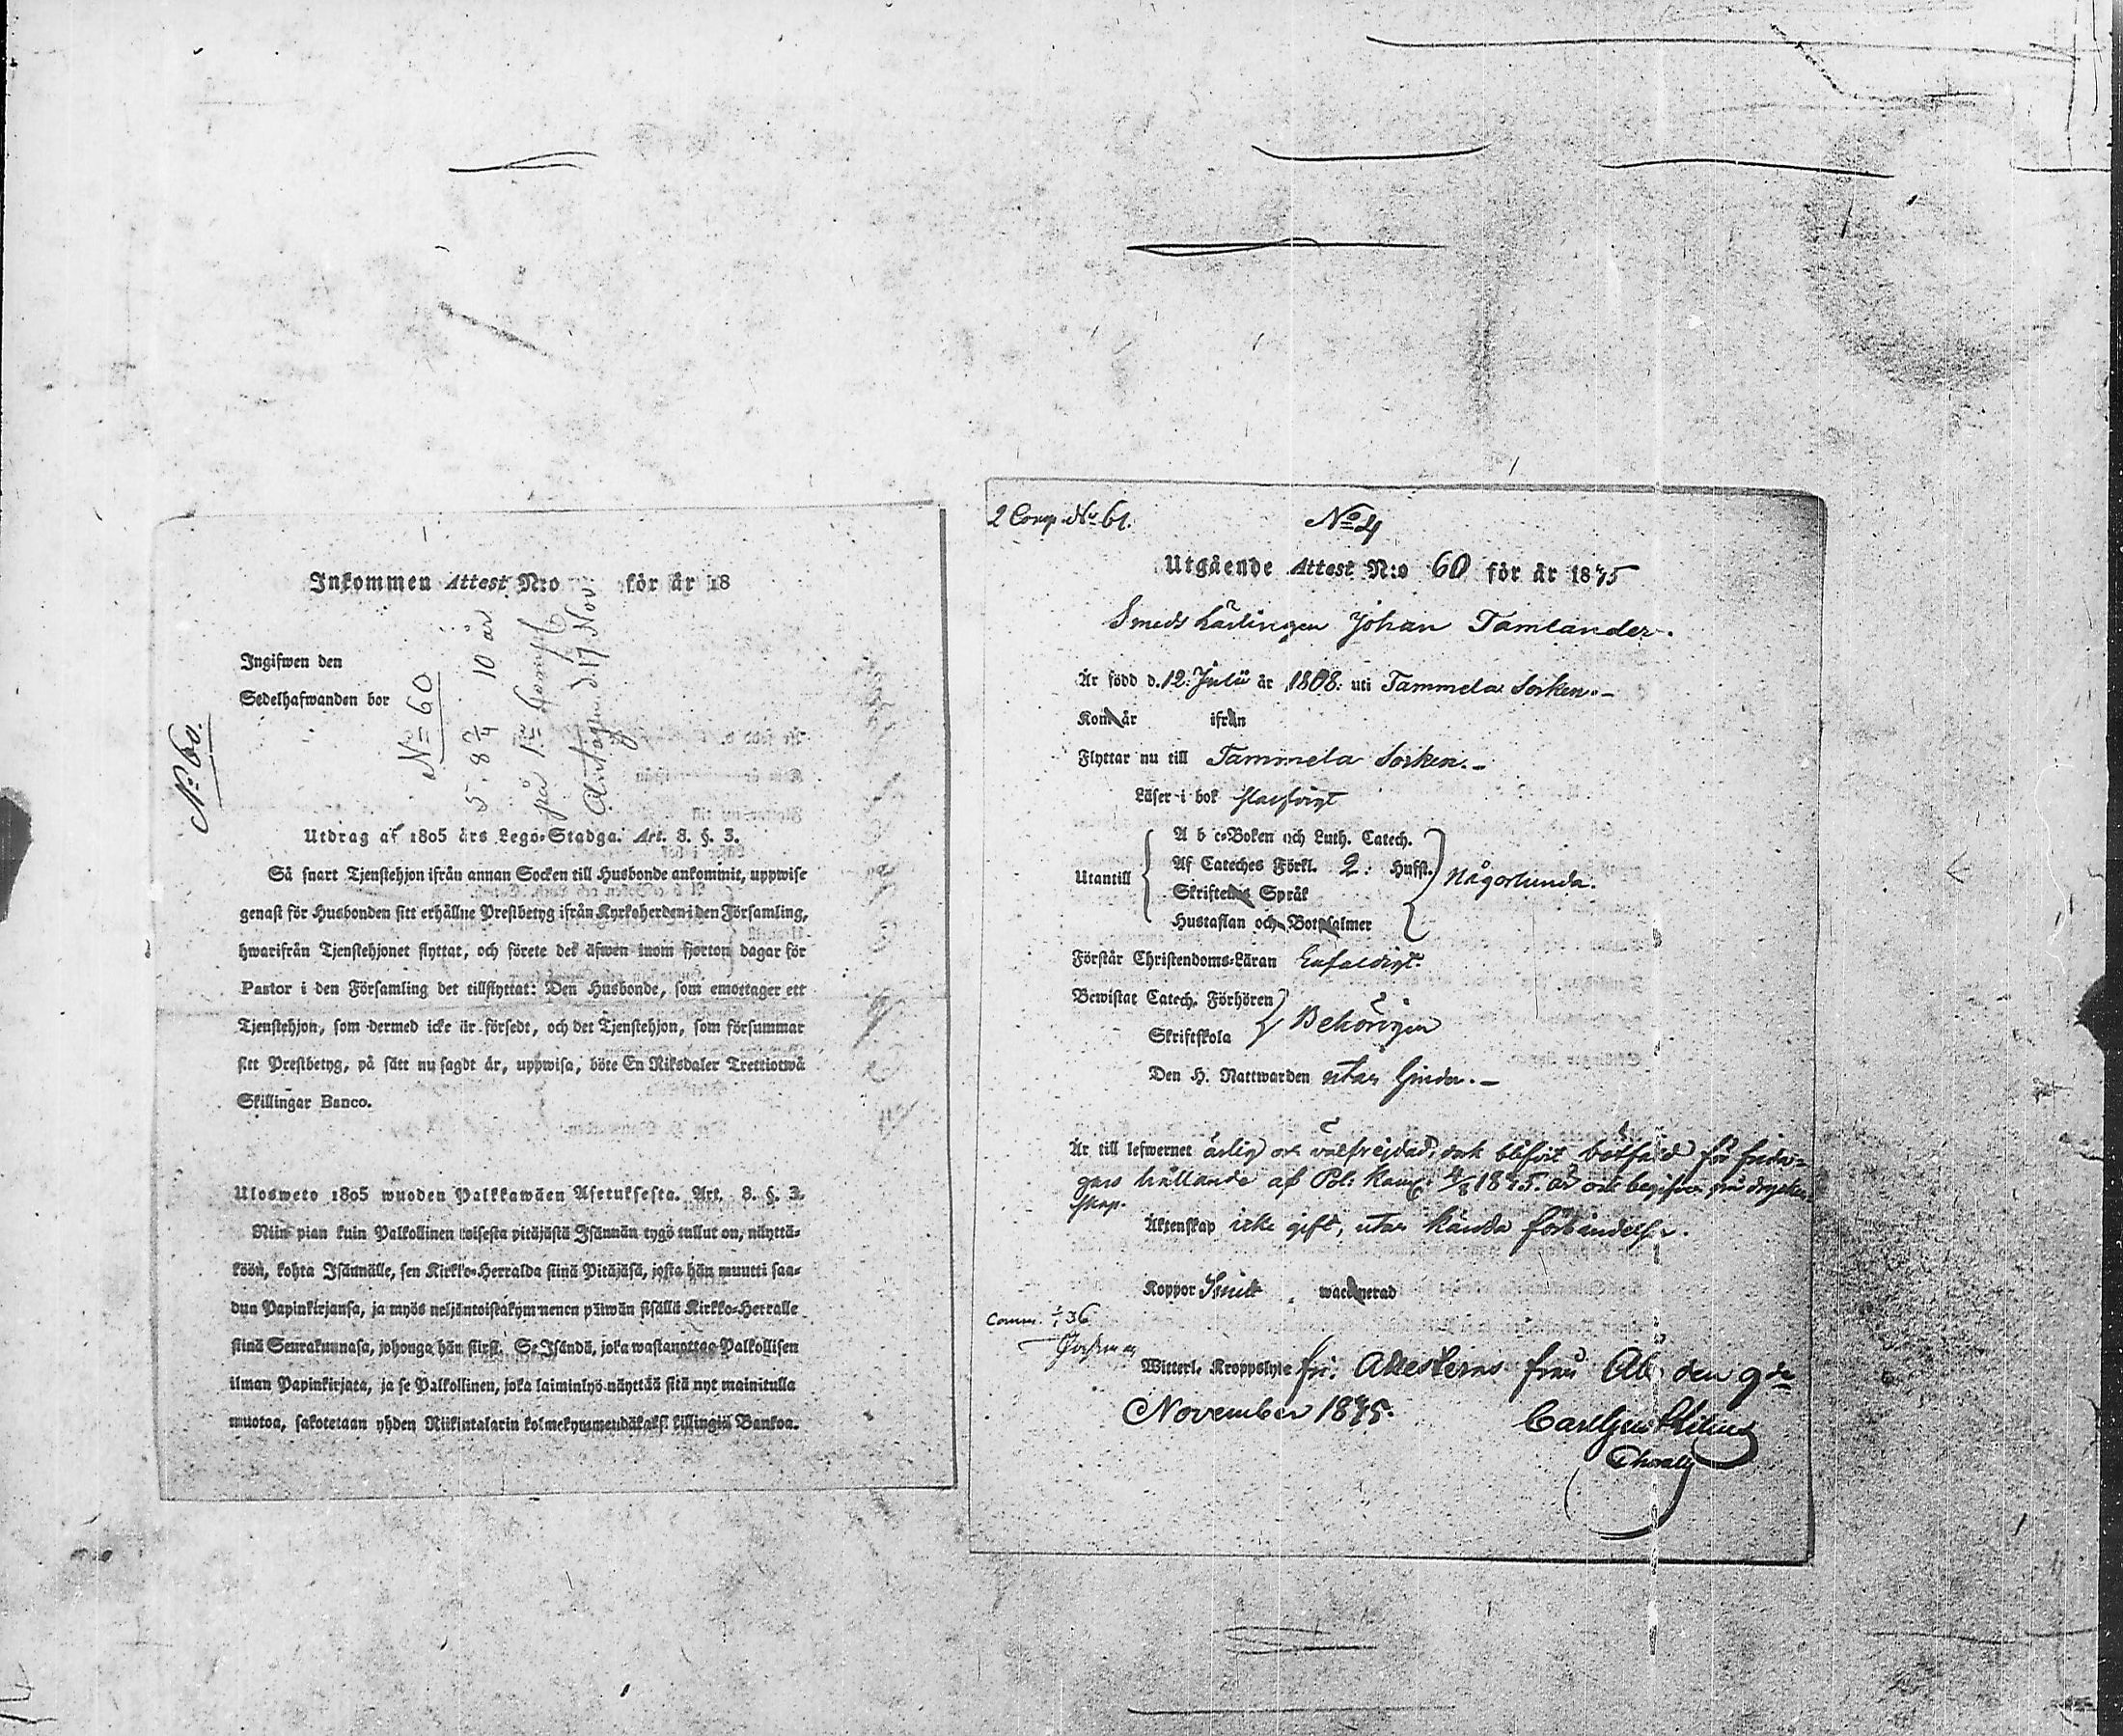 Inkommen Attest N:o för år 18
Ingifwen den
Sedelhafwanden bor
No 60
5. 8 2/4 10 år
på 1:a Komp
Antagen d. 17 Nov
No 60.
Utdrag af 1805 års Lego-Stadga. Art. 8. §. 3.
Så snart Tjenstehjon ifrån annan Socken till Husbonde ankommit, uppwise
genast för Husbonden sitt erhållne Prestbetyg ifrån Kyrkoherden i den Församling,
hwarifrån Tjenstehjonet flyttat, och förete det äfwen inom fjorton dagar för
Pastor i den Församling det tillflyttat: Den Husbonde, som emottager ett
Tjenstehjon, som dermed icke är försedt, och det Tjenstehjon, som försummar
sitt Prestbetyg, på sätt nu sagdt är, uppwisa, böte En Riksdaler Trettiotwå
Skillingar Banco.
Ulosweto 1805 wuoden Palkkawäen Asetuksesta. Art. 8. §. 3.
Niin pian kuin Palkollinen toisesta pitäjästä Isännän tygö tullut on, näyttä-
köön, kohta Isännälle, sen Kirkko-Herralda siinä Pitäjäsä, josta hän muutti saa-
dun Papinkirjansa, ja myös neljäntoistakymmenen päiwän sisällä Kirkko-Herralle
siinä Seurakunnasa, johonga hän siirsi. Se Isändä, joka wastanottaa Palkollisen
ilman Papinkirjata, ja se Palkollinen, joka laiminlyö näyttää sitä nyt mainitulla
muotoa, sakotetaan yhden Riikintalarin kolmekymmendäkaksi killingiä Bankoa.
2 Comp. No 61.
No 4
Utgående Attest N:o 60 för år 1845
Smeds Lärlingen Johan Tamlander.
Är född d. 12: Julii år 1808: uti Tammela Socken.
Kom år ifrån
Flyttar nu till Tammela Socken.
Läser i bok slarfvigt
Utantill
A b c-Boken och Luth. Catech.
Af Cateches Förkl. 2: Hufst.
Skriftenes Språk
Hustaflan och Botpsalmer
Någorlunda.
Förstår Christendoms-Läran Enfaldigt.
Bewistat Catech. Förhören
Skriftskola
Behörigen
Den H. Nattwarden utan hinder.
Är till lefwernet ärlig och välfrejdad, dock blifvit bötfäld för frida-
gars hållande af Pol: Kam: 4/8 1845. är och begifven på drycken-
skap.
Äktenskap icke gift, utan kända förbindelser.
Koppor haft waccinerad
Comm. 1/1 36
Witterl. Kroppslyte fri: Attesteras från Åbo den 9de
November 1845.